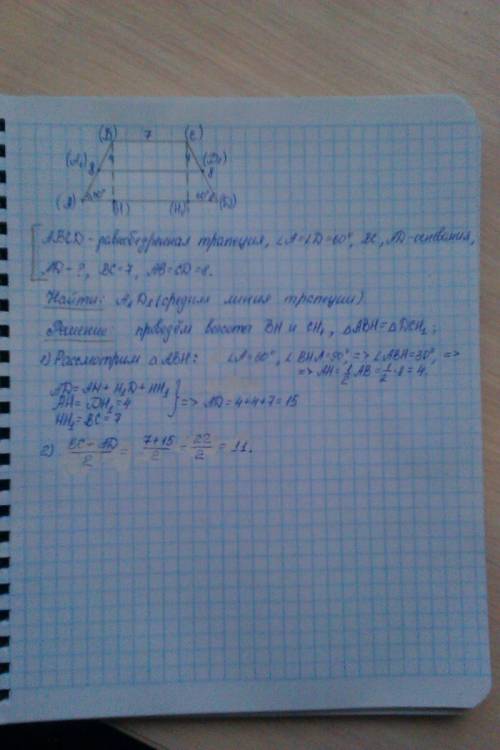 (B) 7 (C)
(A₁) 8 (D₁) 8
(A) 60° (H) (H₁) 60° (D)
ABCD - равнобедренная трапеция, ∠A=∠D=60°, BC, AD-основания,
AD-?, BC=7, AB=CD=8.
Найти: A₁D₁ (средняя линия трапеции)
Решение: проведём высоты BH и CH₁, △ABH=△DCH₁;
1) Рассмотрим △ABH: ∠A=60°, ∠BHA=90°, => ∠ABH=30°, =>
=> AH=½AB=½·8=4.
AD=AH+H₁D+HH₁
AH=DH₁=4 } => AD=4+4+7=15
HH₁=BC=7
2) (BC-AD)/2 = (7+15)/2 = 22/2 = 11.